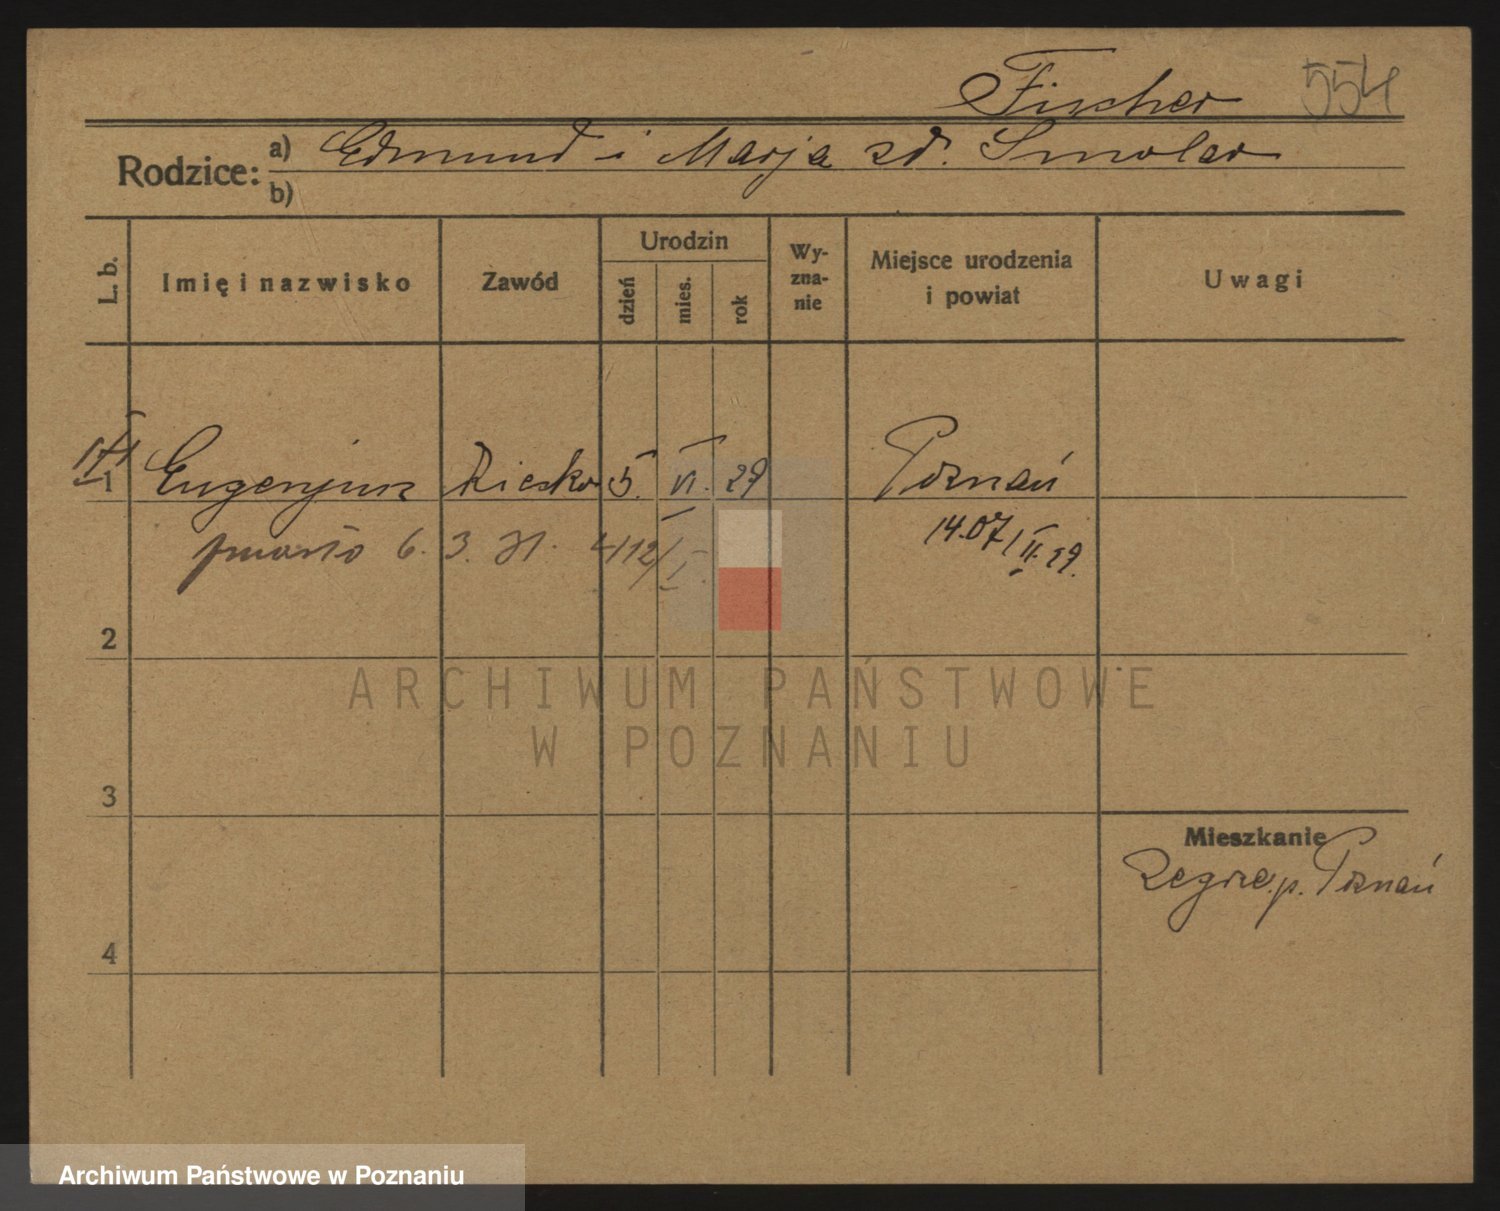 Fischer 554
Rodzice: a) Edmund i Marja zd. Smolar
b)
L. b. Imię i nazwisko Zawód Urodzin dzień mies. rok Wyznanie Miejsce urodzenia i powiat Uwagi
1 Eugenjusz 5. VI. 29 Poznań
zmarło 6. 3. 31.
2
3
Mieszkanie
Zegrze p. Poznań
4
ARCHIWUM PAŃSTWOWE
W POZNANIU
Archiwum Państwowe w Poznaniu